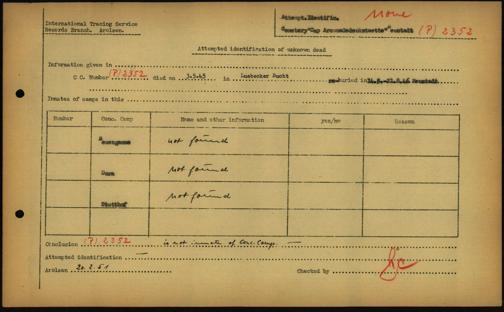 International Tracing Service
Records Branch. Arolsen.
Attempt.Identific. None
Cemetery"Cap Arcona Neustadt (P) 2352
Attempted identification of unknown dead
Information given in
C C. Number (P)2352 died on 3.5.45 in Luebecker Bucht re-buried in Neustadt
Inmates of camps in this
Number Conc. Camp Name and other information yes/no Reason
not found
Dora not found
Stutthof not found
Conclusion (P) 2352 is not inmate of Conc. Camps. —
Attempted identification —
Arolsen 20.2.51 Checked by